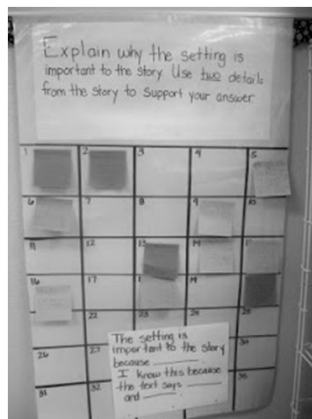 Explain why the setting is
important to the story. Use two details
from the story to support your answer
1 2 3 4 5
6 7 8 9 10
11 12 13 14
16 17 19
22 23 25
26 27 30
31 32 35
The setting is
important to the story
because
I know this because
the text says
and